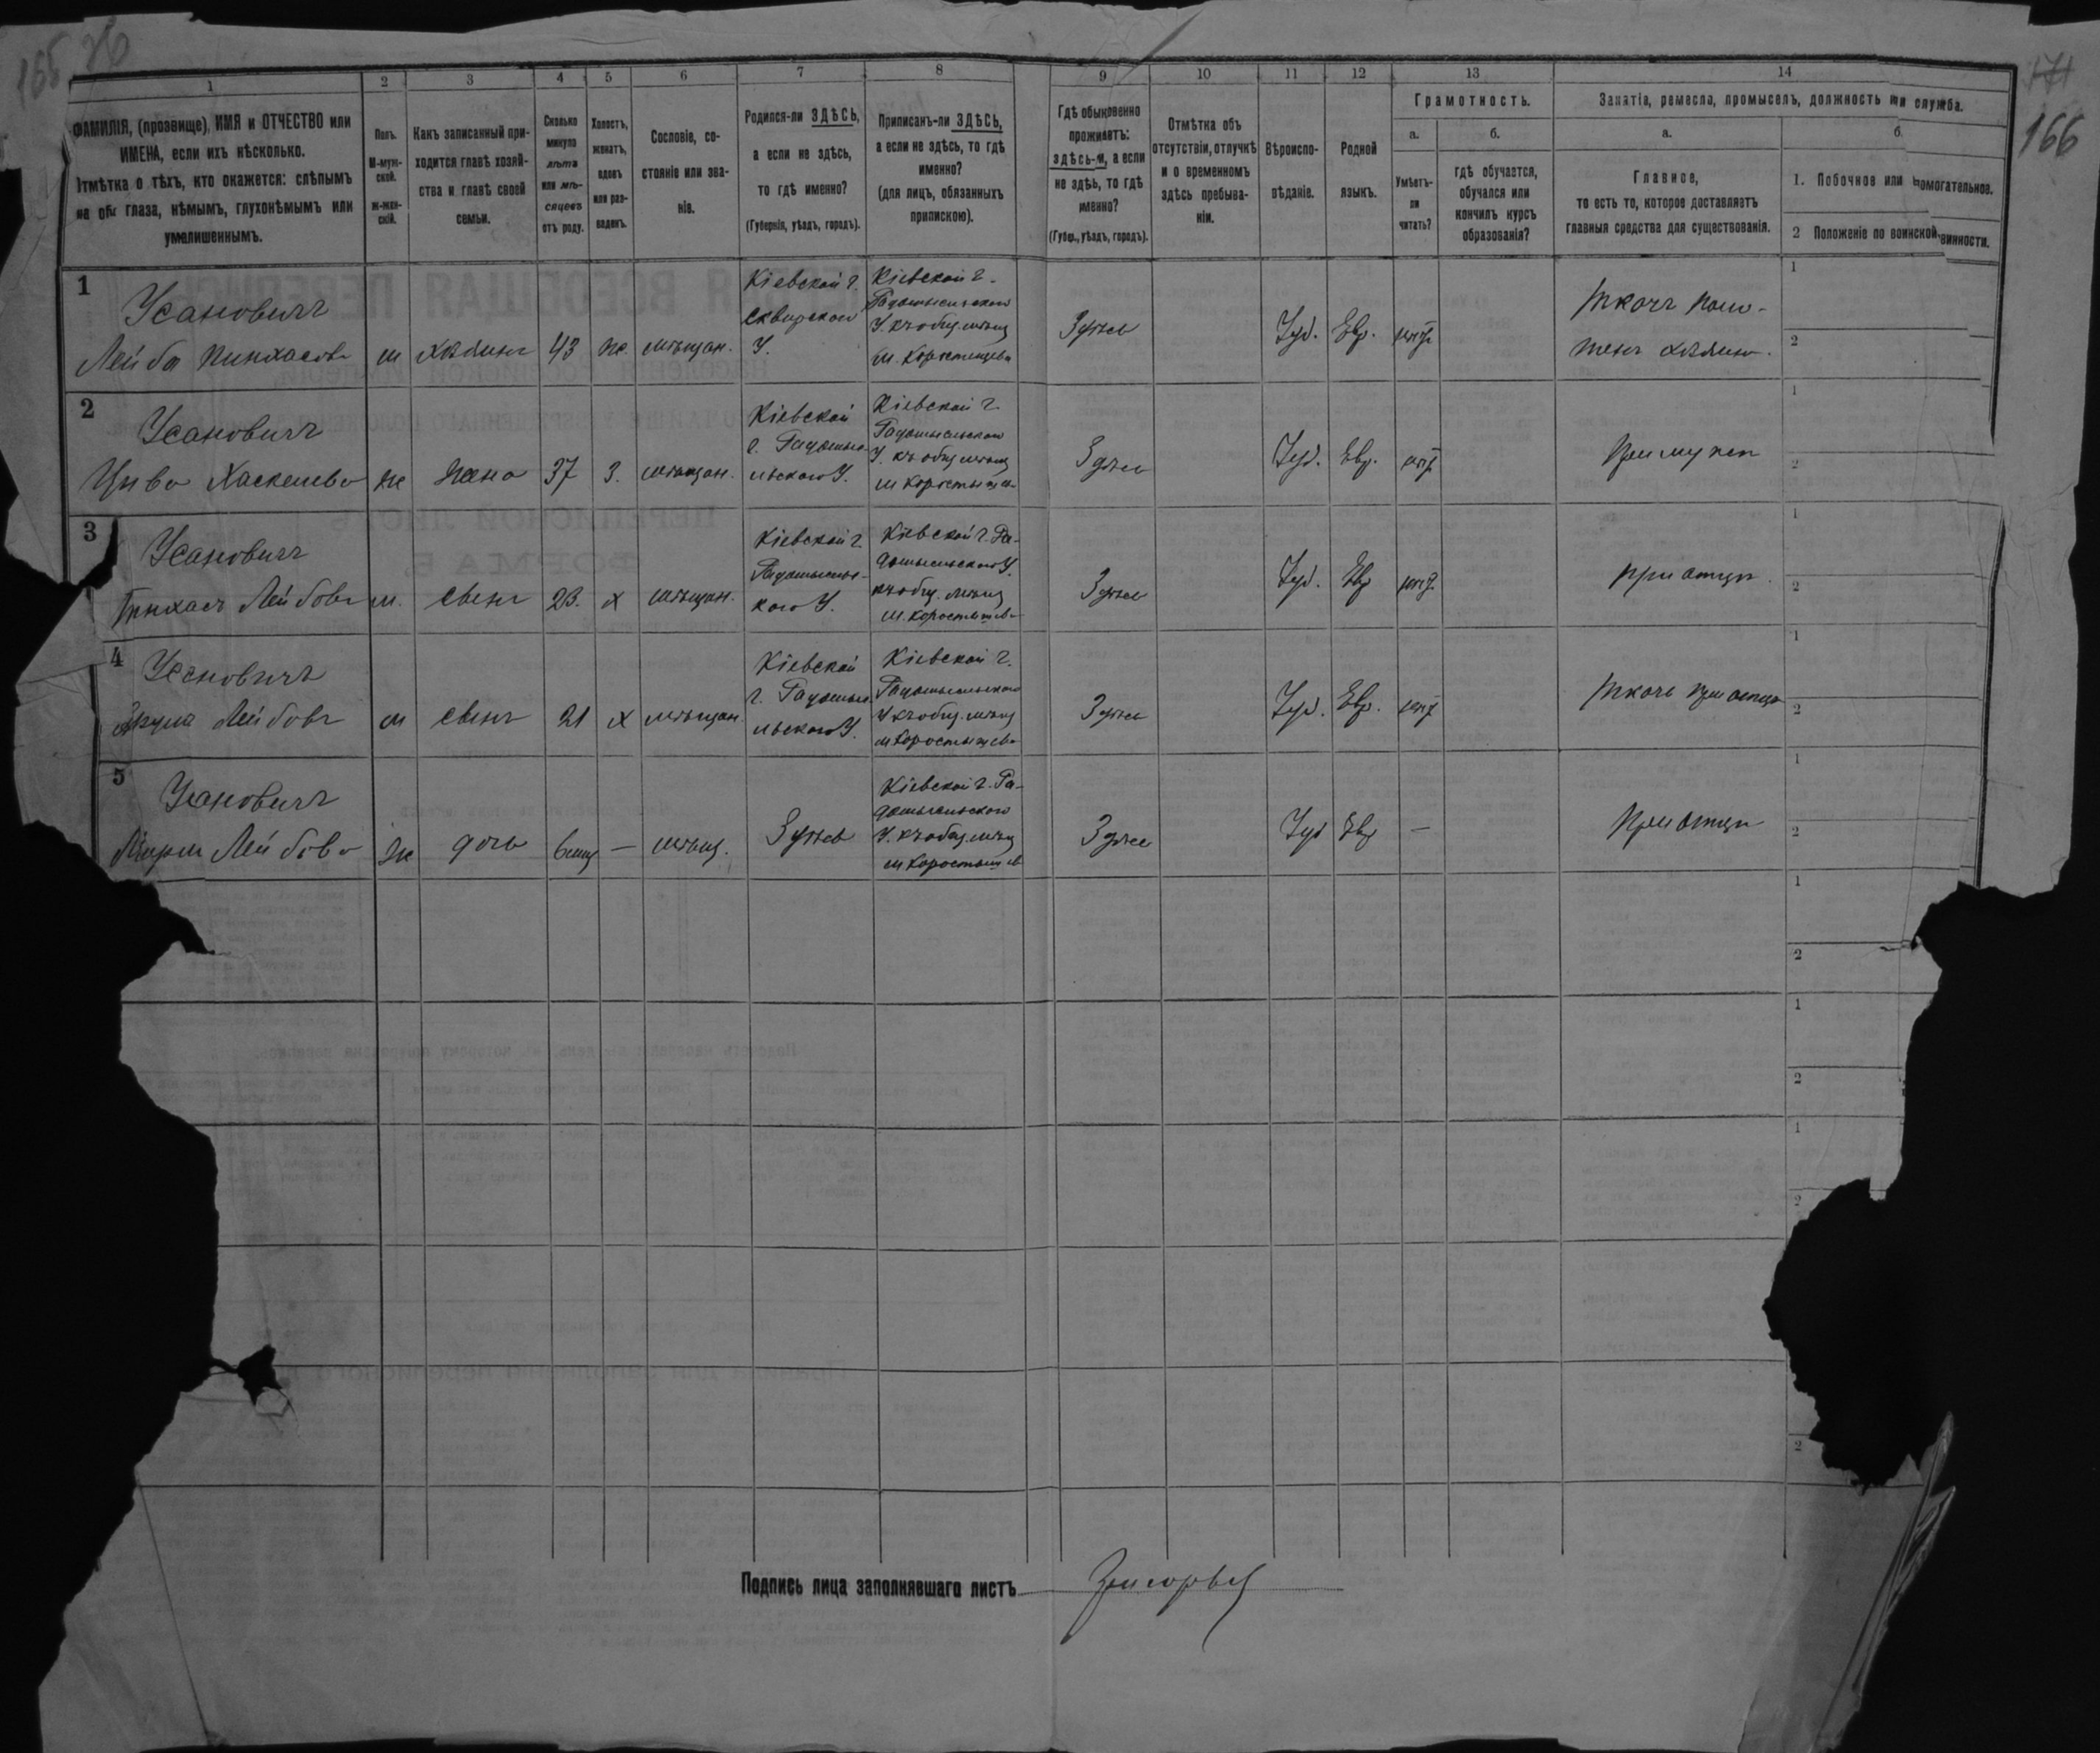 165 26
171
166
1
2
3
4
5
6
7
8
9
10
11
12
13
14
ФАМИЛІЯ, (прозвище), ИМЯ и ОТЧЕСТВО или
ИМЕНА, если ихъ нѣсколько.
Отмѣтка о тѣхъ, кто окажется: слѣпымъ
на оба глаза, нѣмымъ, глухонѣмымъ или
умалишеннымъ.
Полъ.
М-муж-
ской.
Ж-жен-
скій.
Какъ записанный при-
ходится главѣ хозяй-
ства и главѣ своей
семьи.
Сколько
минуло
лѣтъ
или мѣ-
сяцевъ
отъ роду.
Холостъ,
женатъ,
вдовъ
или раз-
веденъ.
Сословіе, со-
стояніе или зва-
ніе.
Родился-ли ЗДѢСЬ,
а если не здѣсь,
то гдѣ именно?
(Губернія, уѣздъ, городъ).
Приписанъ-ли ЗДѢСЬ,
а если не здѣсь, то гдѣ
именно?
(для лицъ, обязанныхъ
припискою).
Гдѣ обыкновенно
проживаетъ:
здѣсь-ли, а если
не здѣсь, то гдѣ
именно?
(Губер., уѣздъ, городъ).
Отмѣтка объ
отсутствіи, отлучкѣ
и о временномъ
здѣсь пребыва-
ніи.
Вѣроиспо-
вѣданіе.
Родной
языкъ.
Грамотность.
а.
б.
Умѣетъ-
ли
читать?
гдѣ обучается,
обучался или
кончилъ курсъ
образованія?
Занятія, ремесло, промыселъ, должность или служба.
а.
б.
Главное,
то есть то, которое доставляетъ
главныя средства для существованія.
1. Побочное или вспомогательное.
2 Положеніе по воинской повинности.
1
Усановичъ
Лейба Пинхасовъ м хозяинъ 43 ж. мѣщан.
Кіевской г.
Сквирскаго
У.
Кіевской г.
Радомысльскаго
У. къ общ. мѣщ
м. Коростышева
Здѣсь Іуд. Евр.
Ткачъ
хозяинъ.
1
2
2
Усановичъ
Цива Хаскелева ж жена 37 З. мѣщан.
Кіевской
г. Радомы-
сльскаго У.
Кіевской г.
Радомысльскаго
У. къ общ мѣщ
м Коростышев
Здѣсь Іуд. Евр.
При мужѣ
1
2
3
Усановичъ
Пинхасъ Лейбовъ м. сынъ 23. х мѣщан.
Кіевской г.
Радомысльс-
каго У.
Кіевской г. Ра-
домысльскаго У.
къ общ. мѣщ
м. Коростышев
Здѣсь Іуд. Евр
при отцѣ.
1
2
4
Усановичъ
Лейбовъ м сынъ 21 х мѣщан.
Кіевской
г. Радомы-
сльскаго У.
Кіевской г.
Радомысльскаго
У къ общ. мѣщ
м Коростышев
Здѣсь Іуд. Евр.
Ткачъ при отцѣ
1
2
5
Усановичъ
Лейбова ж дочь 6 мщ — мѣщ.
Здѣсь
Кіевской г. Ра-
домысльскаго
У. къ общ. мѣщ
м Коростышев
Здѣсь Іуд Евр —
При отцѣ
1
2
1
2
1
2
1
2
2
Подпись лица заполнявшаго листъ